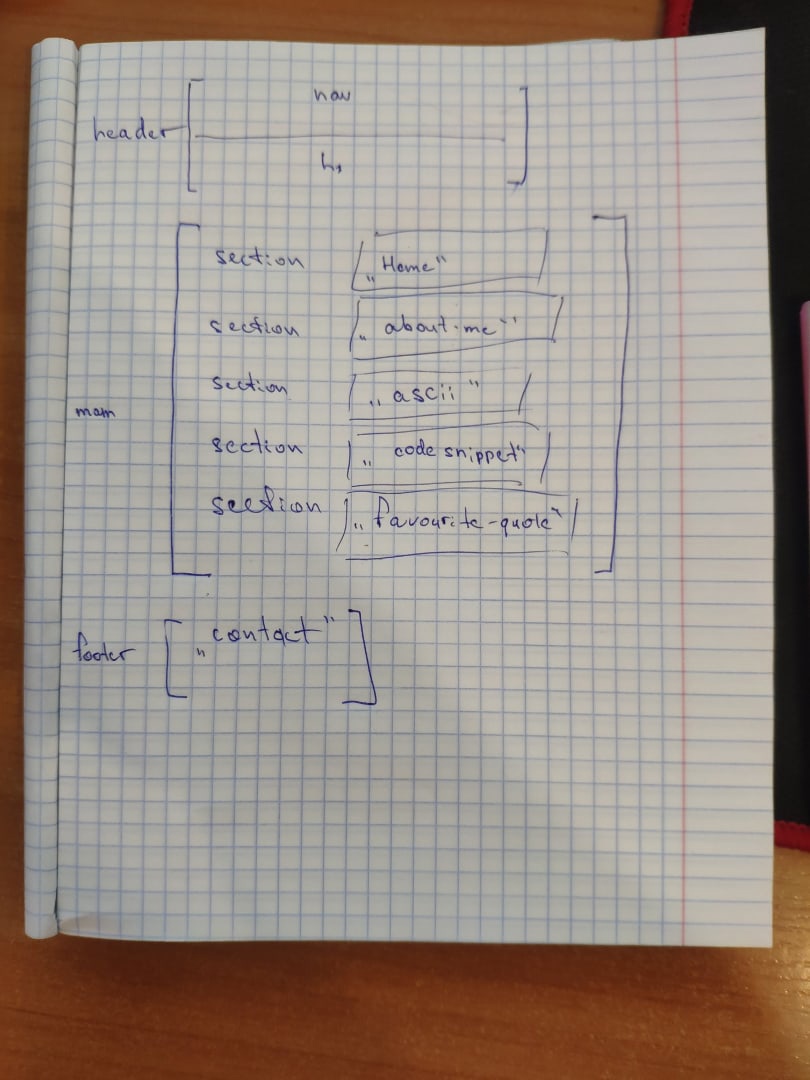 nav
header
h1
section „Home“
section „about-me“
section „ascii“
main
section „code snippet“
section „favourite-quote“
footer „contact“